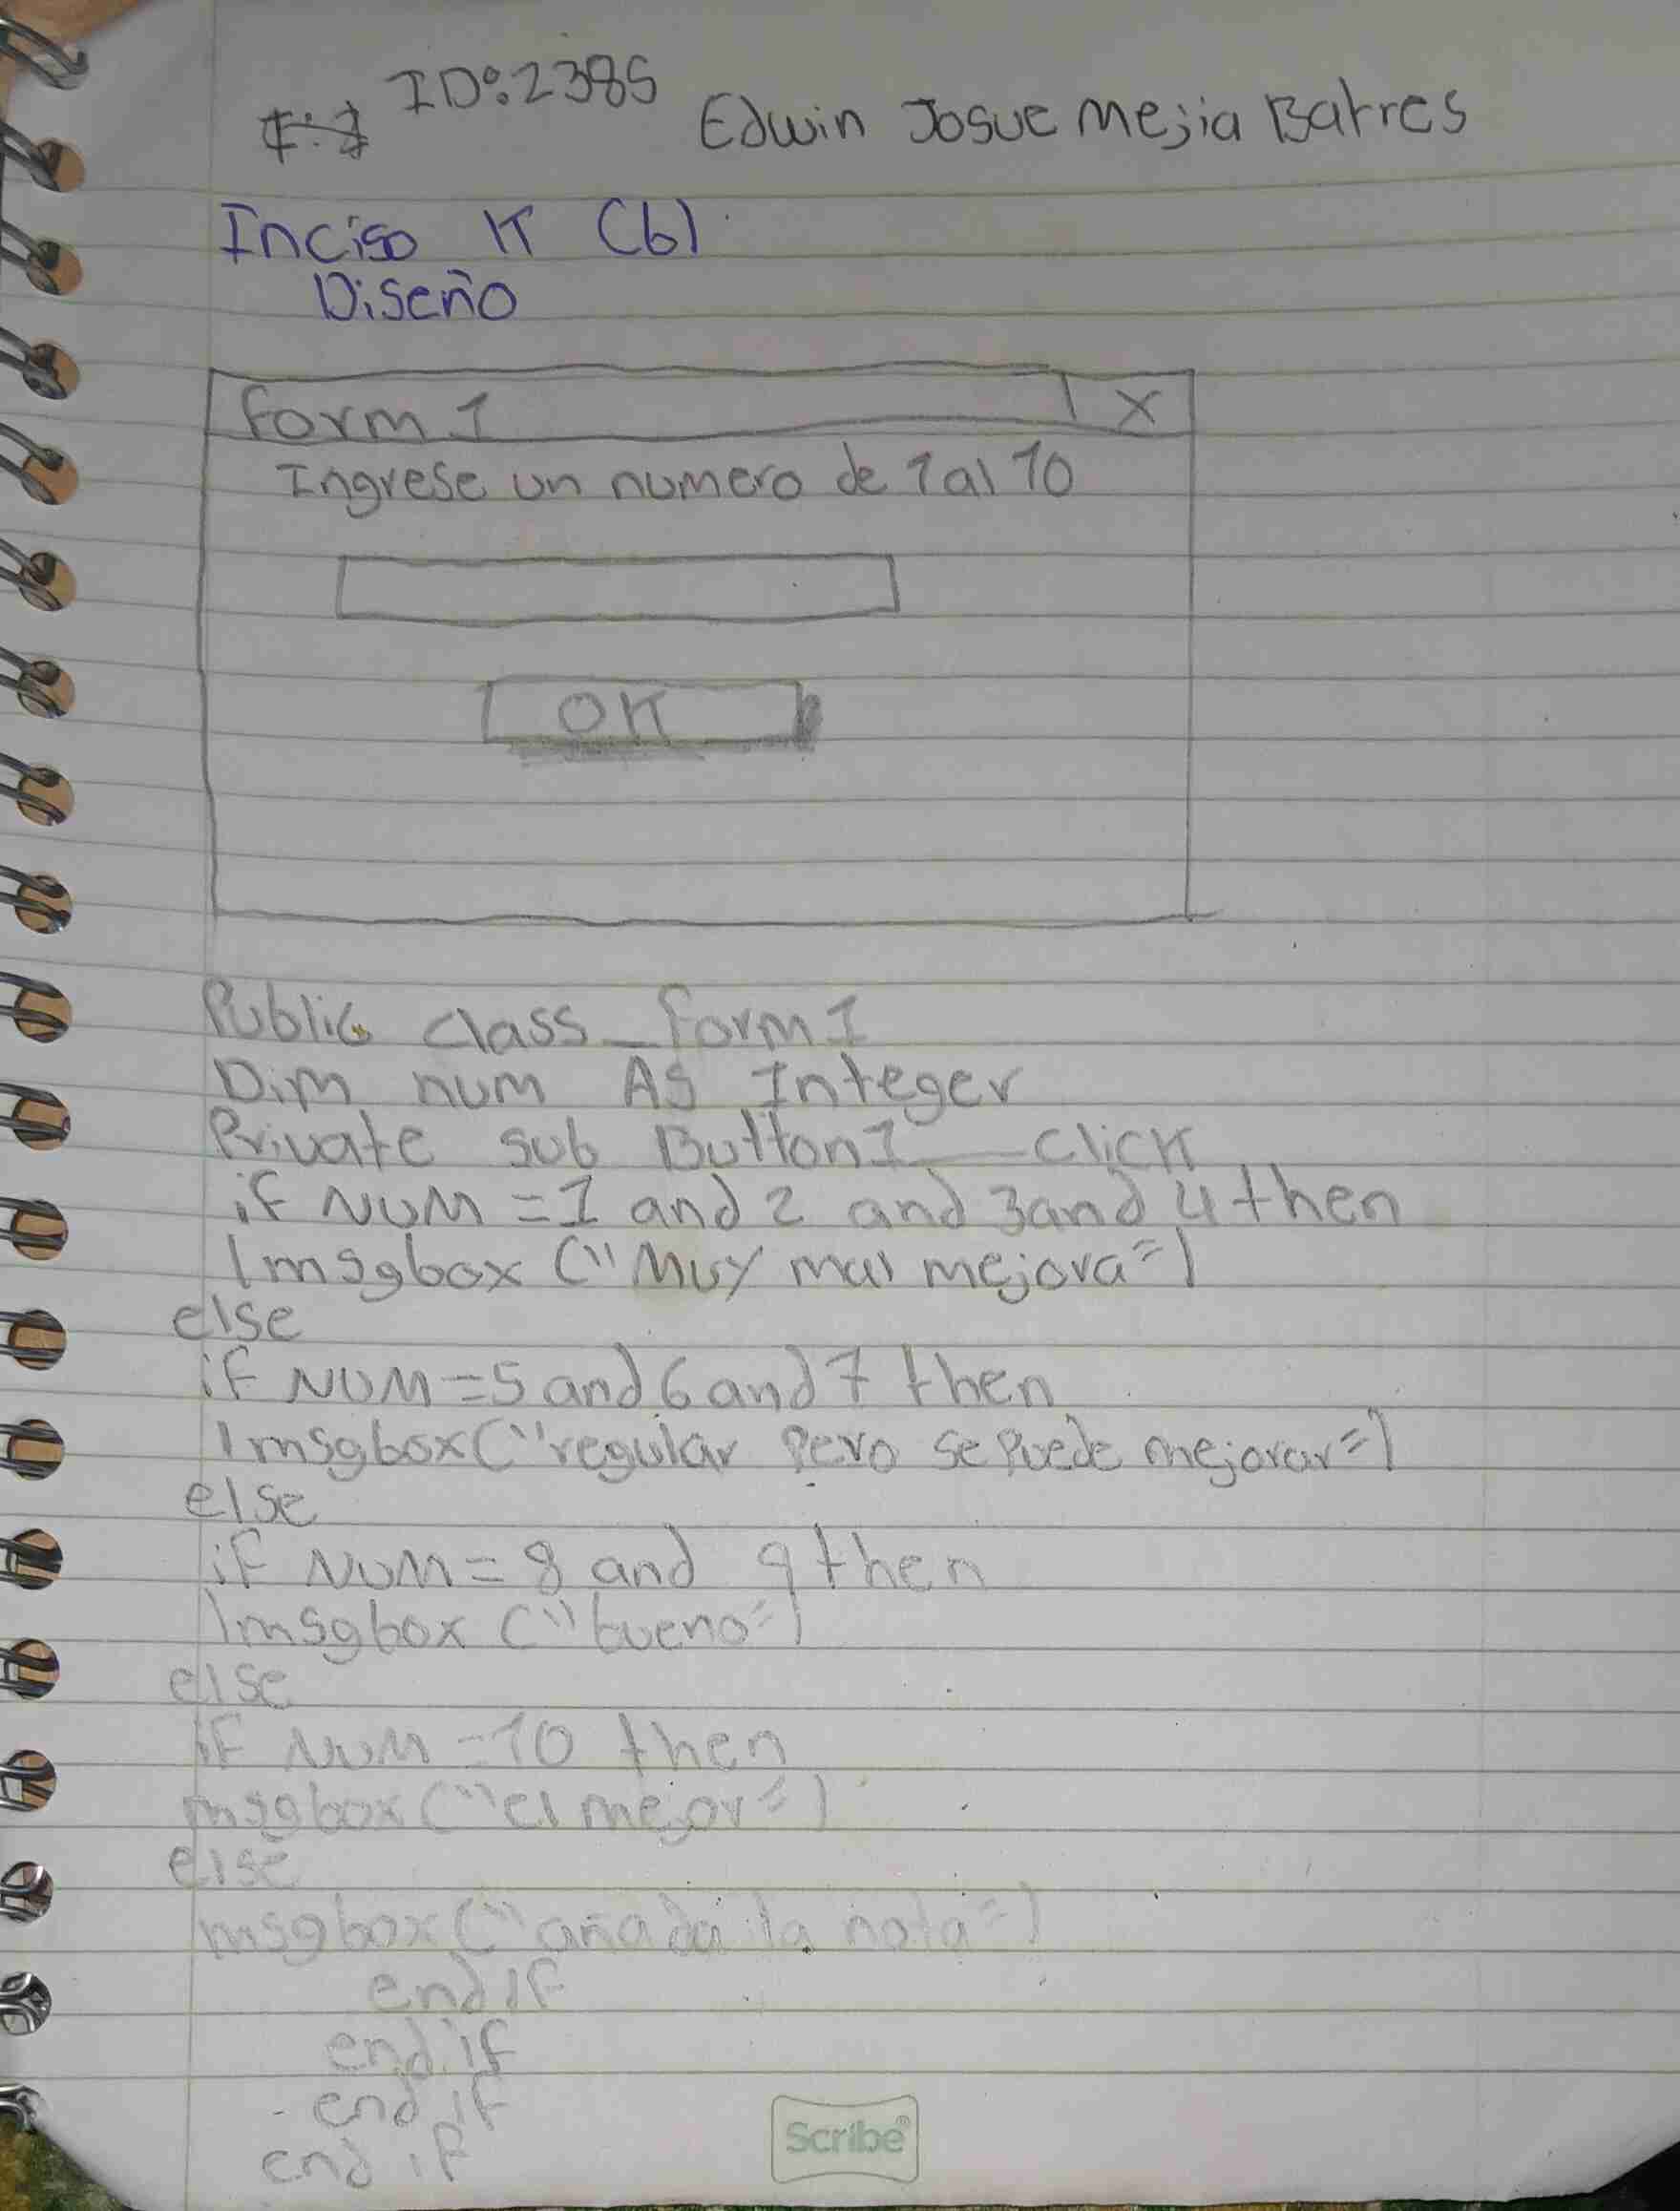 ID:2385
Edwin Josue Mejia Batres
Inciso K (b)
Diseño
form 1 X
Ingrese un numero de 1 al 10
OK
Public class_form1
Dim num As Integer
Private sub Button1_click
if NUM = 1 and 2 and 3 and 4 then
Imsgbox ("Muy mal mejora")
else
if NUM = 5 and 6 and 7 then
Imsgbox ("regular pero se puede mejorar")
else
if NUM = 8 and 9 then
Imsgbox ("bueno")
else
if NUM = 10 then
msgbox ("el mejor")
else
msgbox ("añada la nota")
end if
end if
end if
end if
Scribe®